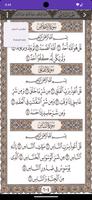 سُورَةُ الإِخْلَاصِ
بِسْمِ اللَّهِ الرَّحْمَٰنِ الرَّحِيمِ
قُلْ هُوَ اللَّهُ أَحَدٌ ١ اللَّهُ الصَّمَدُ ٢ لَمْ يَلِدْ
وَلَمْ يُولَدْ ٣ وَلَمْ يَكُن لَّهُ كُفُوًا أَحَدٌ ٤
سُورَةُ الفَلَقِ
بِسْمِ اللَّهِ الرَّحْمَٰنِ الرَّحِيمِ
قُلْ أَعُوذُ بِرَبِّ الْفَلَقِ ١ مِن شَرِّ مَا خَلَقَ ٢ وَمِن شَرِّ
غَاسِقٍ إِذَا وَقَبَ ٣ وَمِن شَرِّ النَّفَّاثَاتِ فِي الْعُقَدِ ٤
وَمِن شَرِّ حَاسِدٍ إِذَا حَسَدَ ٥
سُورَةُ النَّاسِ
بِسْمِ اللَّهِ الرَّحْمَٰنِ الرَّحِيمِ
قُلْ أَعُوذُ بِرَبِّ النَّاسِ ١ مَلِكِ النَّاسِ ٢
إِلَٰهِ النَّاسِ ٣ مِن شَرِّ الْوَسْوَاسِ الْخَنَّاسِ ٤
الَّذِي يُوَسْوِسُ فِي صُدُورِ النَّاسِ ٥
مِنَ الْجِنَّةِ وَالنَّاسِ ٦
٦٠٤